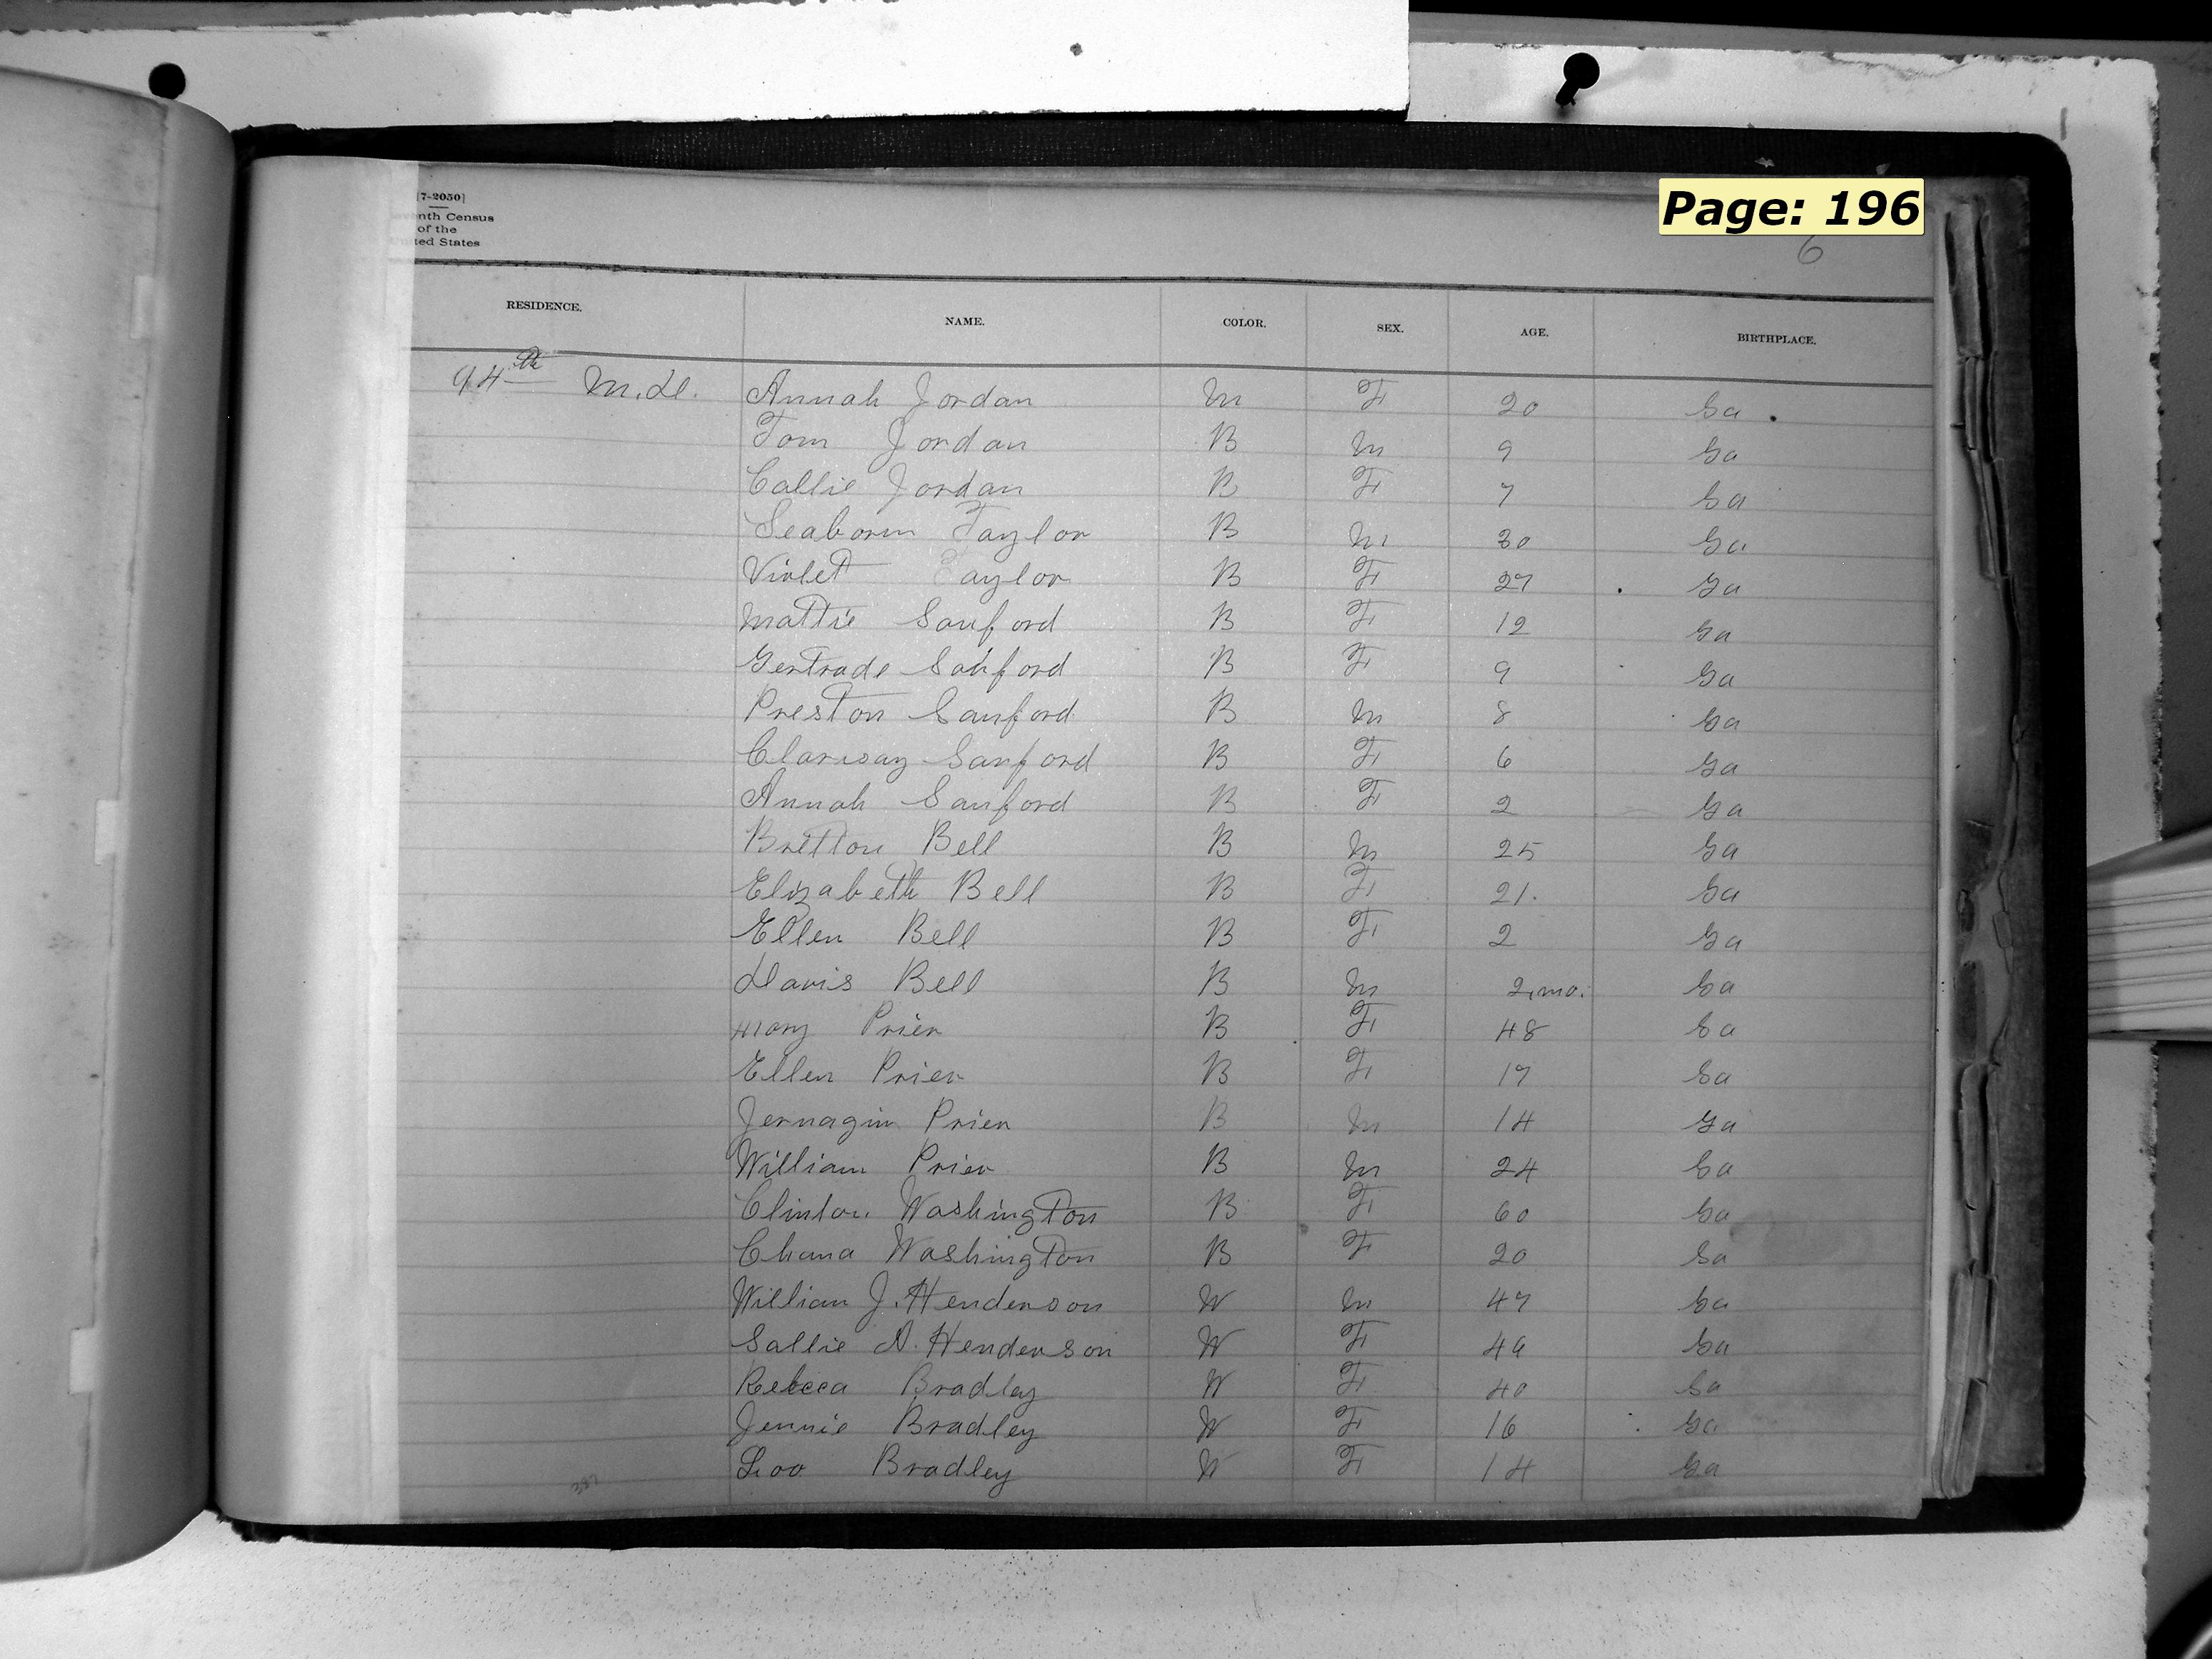 [7-2050]
nth Census
of the
ted States
Page: 196
6
RESIDENCE. NAME. COLOR. SEX. AGE. BIRTHPLACE.
94th M.D. Annah Jordan M F 20 Ga
Tom Jordan B M 9 Ga
Callie Jordan B F 7 Ga
Seaborn Taylor B M 30 Ga
Violet Taylor B F 27 Ga
Mattie Sanford B F 12 Ga
Gertrade Sanford B F 9 Ga
Preston Sanford B M 8 Ga
Clarisay Sanford B F 6 Ga
Annah Sanford B F 2 Ga
Britton Bell B M 25 Ga
Elizabeth Bell B F 21. Ga
Ellen Bell B F 2 Ga
Davis Bell B M 2 mo. Ga
Mary Prier B F 48 Ga
Ellen Prier B F 17 Ga
Jernagin Prier B M 14 Ga
William Prier B M 24 Ga
Clinton Washington B F 60 Ga
Chana Washington B F 20 Ga
William J. Henderson W M 47 Ga
Sallie A. Henderson W F Ga
Rebecca Bradley W F 40 Ga
Jennie Bradley W F 16 Ga
Loo Bradley W F 14 Ga
387